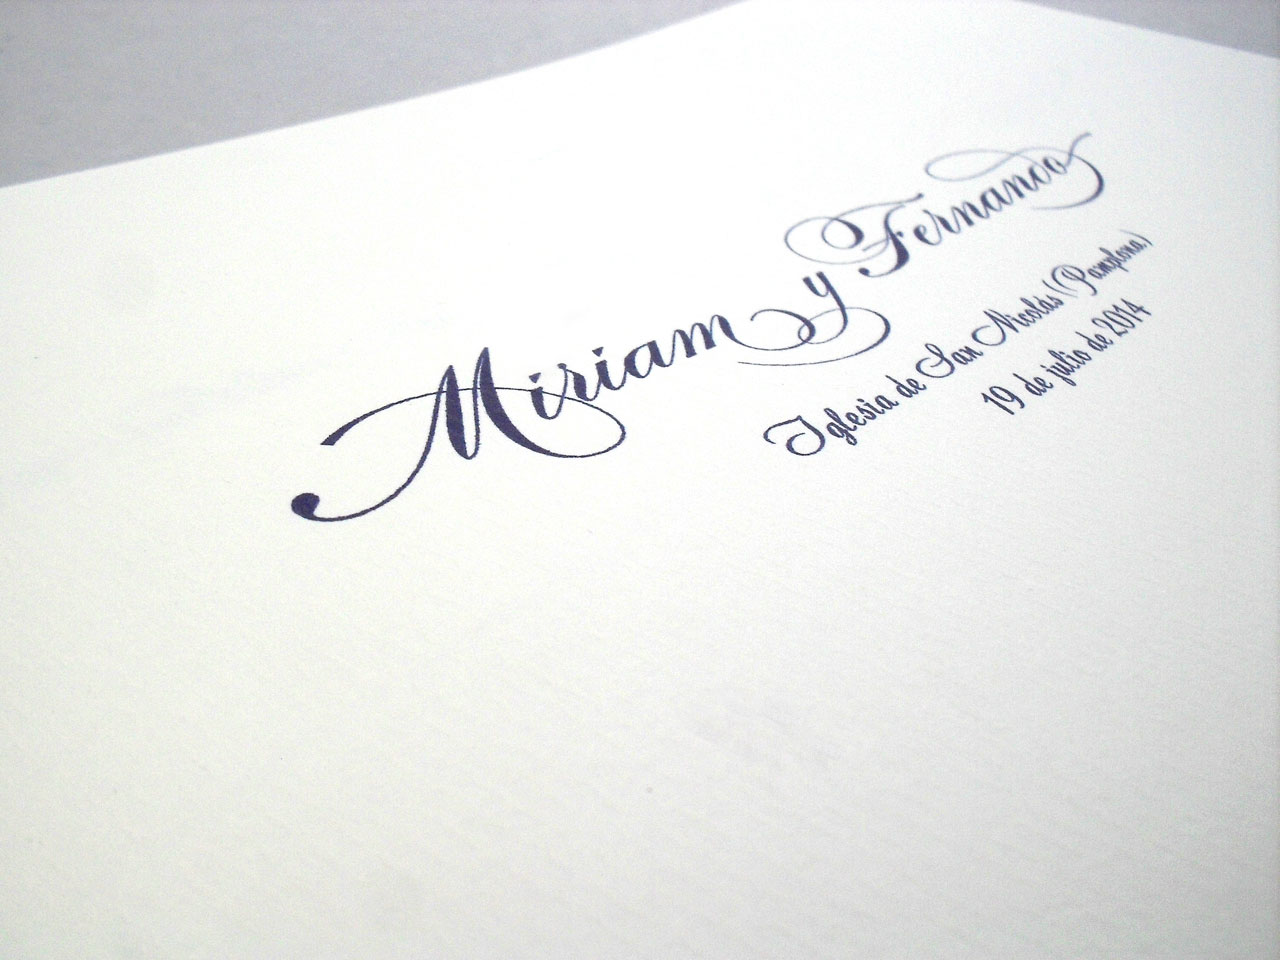 Miriam y Fernando
Iglesia de San Nicolás (Pamplona)
19 de julio de 2014